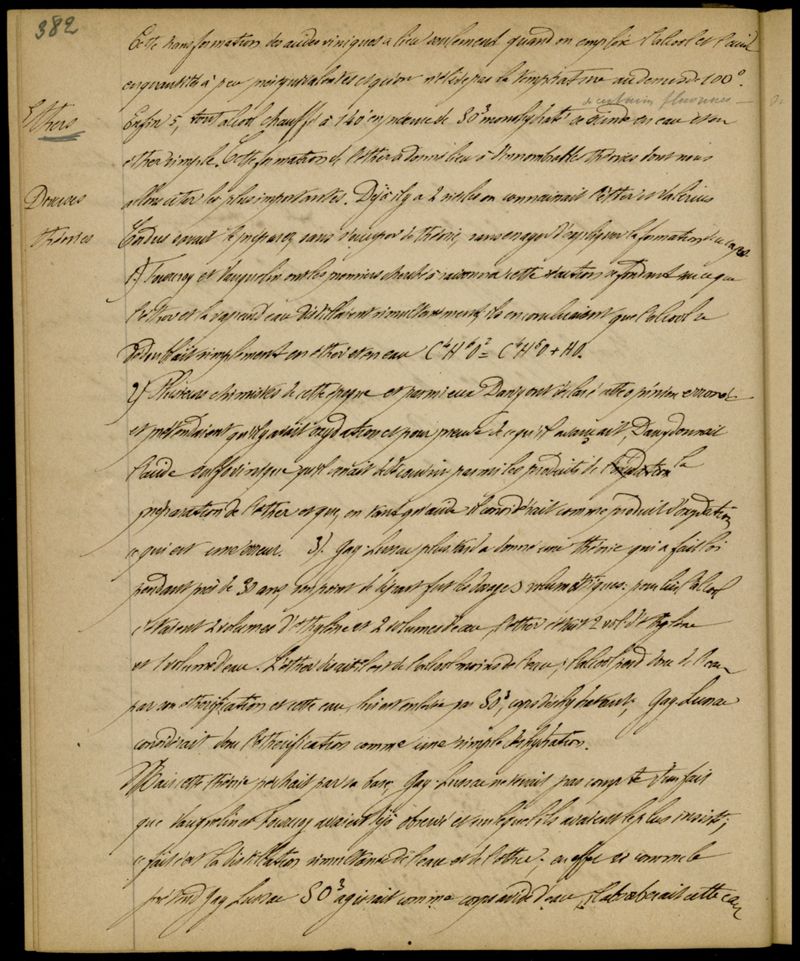 382
Cette transformation des acides viniques a lieu seulement quand on emploie l'alcool et l'acide
en quantités à peu près équivalentes et qu'on n'élève pas la température au dessus de 100°.
Ethers
Enfin 5, tout alcool chauffé à 140 en présence de SO³ monohydraté se scinde en eau et en
éther simple. Cette formation de l'éther a donné lieu à d'innombrables théories dont nous
Diverses
théories
allons citer les plus importantes. Déjà il y a 2 siècles on connaissait l'éther et Valerius
Cordus savait le préparer, sans s'occuper de théorie, sans essayer d'expliquer la formation de ce corps.
1) Fourcroy et Vauquelin ont les premiers cherché à raisonner cette réaction se fondant sur ce que
l'éther et la vapeur d'eau distillaient simultanément, ils en concluaient que l'alcool se
dédoublait simplement en éther et en eau C⁴H⁶O² = C⁴H⁵O + HO.
2) Plusieurs chimistes de cette époque et parmi eux Dany ont déclaré cette opinion erronée
et prétendaient qu'il y avait oxydation et pour preuve de ce qu'il avançait, Dany donnait
l'acide sulfovinique qu'il venait de découvrir parmi les produits de la
préparation de l'éther et que, en tant qu'acide il considérait comme produit d'oxydation,
ce qui est une erreur. 3). Gay-Lussac plus tard a donné une théorie qui a fait loi
pendant près de 30 ans, son point de départ fut les dosages volumétriques: pour lui l'alcool
c'étaient 2 volumes d'éthylène et 2 volumes d'eau, l'éther était 2 vol. d'éthylène
et 1 volume d'eau. L'éther disait-il est de l'alcool moins de l'eau, l'alcool perd donc de l'eau
par son éthérification et cette eau, lui est enlevée par SO³, corps déshydratant; Gay-Lussac
considérait donc l'éthérification comme une simple déshydratation.
Mais cette théorie péchait par sa base, Gay-Lussac ne tenait pas compte d'un fait
que Vauquelin et Fourcroy avaient déjà observé et sur lequel ils avaient le plus insisté;
ce fait c'est la distillation simultanée de l'eau et de l'éther; en effet si comme le
prétend Gay Lussac SO³ agissait comme corps avide d'eau, il absorberait cette eau